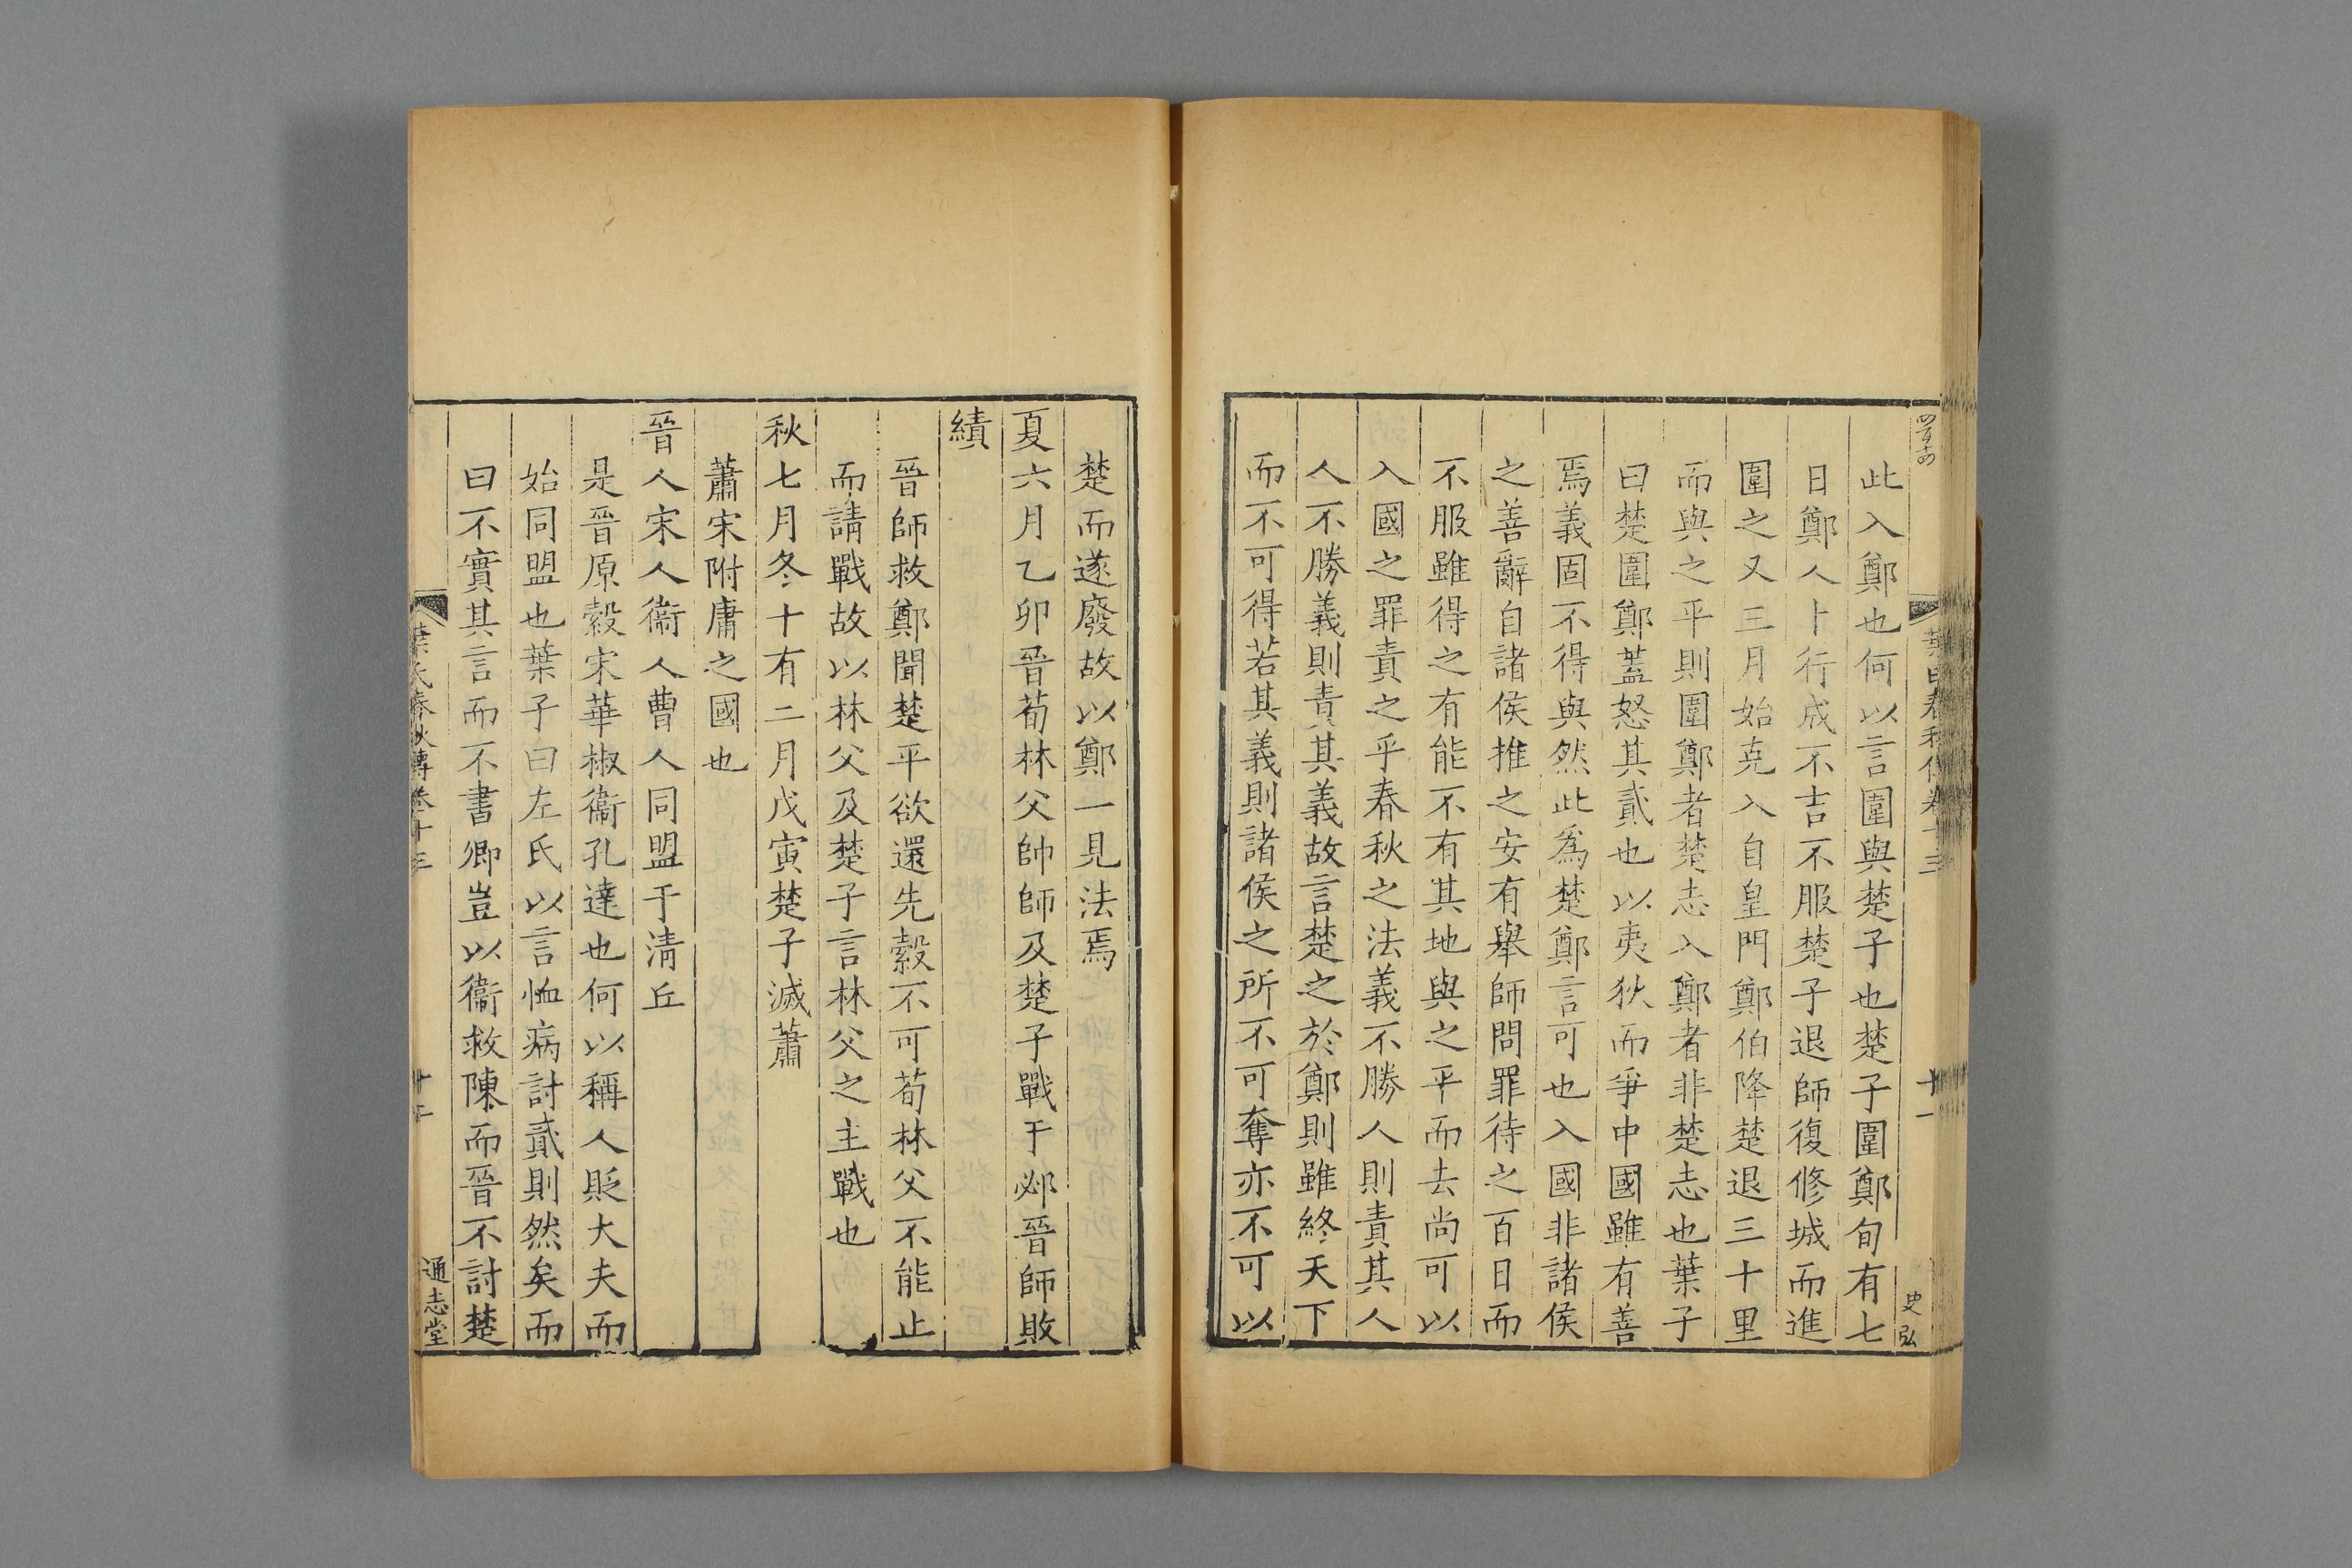 葉氏春秋傳卷十三
十一
史弘
此入鄭也何以言圍與楚子也楚子圍鄭旬有七
日鄭人卜行成不吉不服楚子退師復修城而進
圍之又三月始克入自皇門鄭伯降楚退三十里
而與之平則圍鄭者楚志入鄭者非楚志也葉子
曰楚圍鄭蓋怒其貳也以夷狄而爭中國雖有善
焉義固不得與然此爲楚鄭言可也入國非諸侯
之善辭自諸侯推之安有舉師問罪待之百日而
不服雖得之有能不有其地與之平而去尚可以
入國之罪責之乎春秋之法義不勝人則責其人
人不勝義則責其義故言楚之於鄭則雖終天下
而不可得若其義則諸侯之所不可奪亦不可以
楚而遂廢故以鄭一見法焉
夏六月乙卯晉荀林父帥師及楚子戰于邲晉師敗
績
晉師救鄭聞楚平欲還先縠不可荀林父不能止
而請戰故以林父及楚子言林父之主戰也
秋七月冬十有二月戊寅楚子滅蕭
蕭宋附庸之國也
晉人宋人衞人曹人同盟于清丘
是晉原縠宋華椒衞孔達也何以稱人貶大夫而
始同盟也葉子曰左氏以言恤病討貳則然矣而
曰不實其言而不書卿豈以衞救陳而晉不討楚
葉氏春秋傳卷十三
通志堂